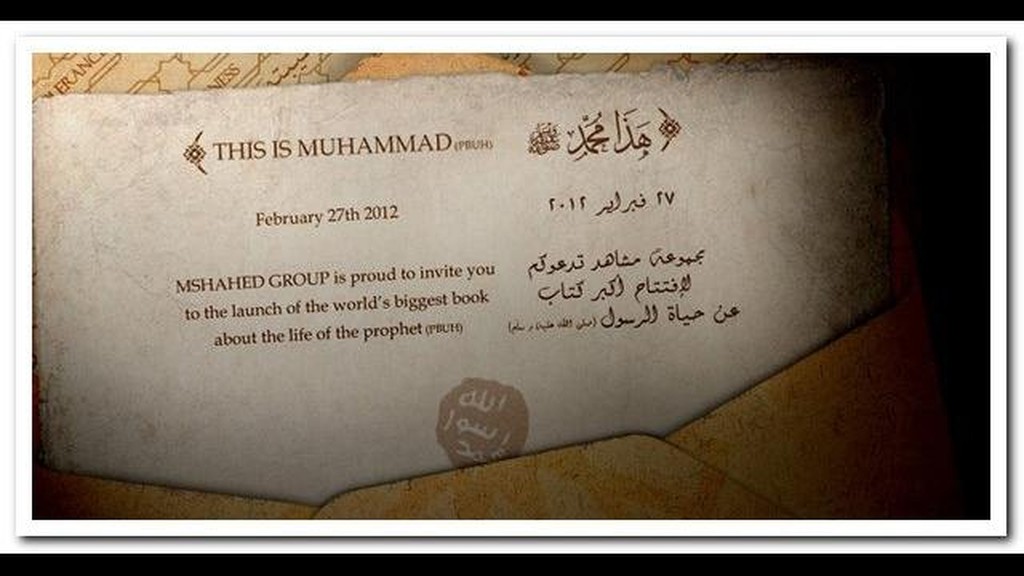 THIS IS MUHAMMAD (PBUH)
February 27th 2012
MSHAHED GROUP is proud to invite you
to the launch of the world's biggest book
about the life of the prophet (PBUH)
هَذَا مُحَمَّد ﷺ
٢٧ فبراير ٢٠١٢
مجموعة مشاهد تدعوكم
لإفتتاح اكبر كتاب
عن حياة الرسول (صلى الله عليه و سلم)
الله
رسول